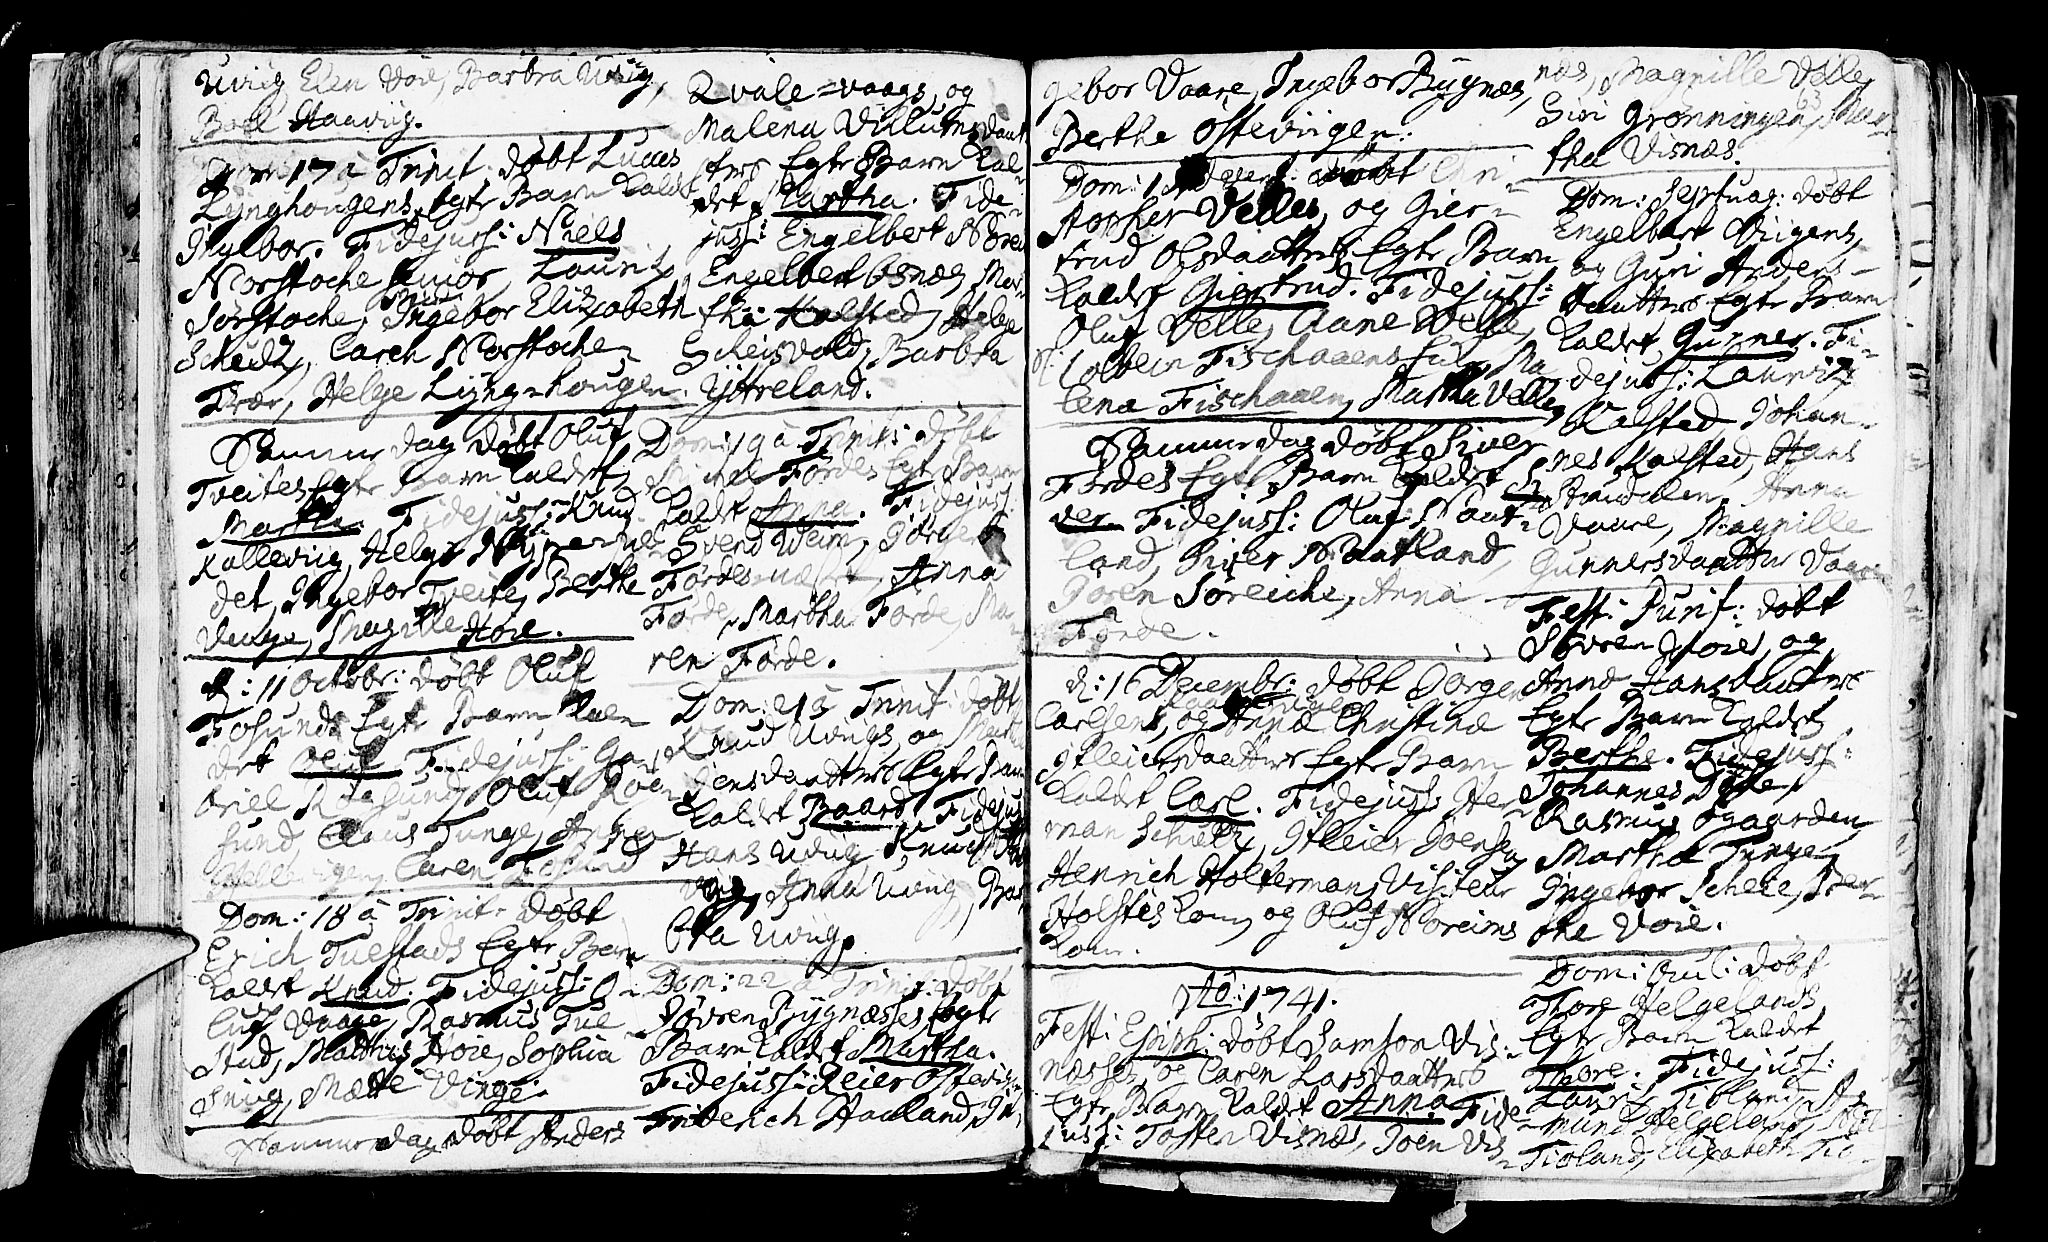 Uviig, Elen Voie, Barbra Uviig,
Boel Haaviig.
Dom: 17 à Trinit: døbt Lucas
Lynghougens Egte Barn kaldet
Ingebor. Fidejuss: Niels
Norstoche Junior, Lauritz
Sørstoche, Ingebor Elizabeth
Scheidz, Caren Norstoche
Træe, Helge Lÿng-hougen.
Samme dag døbt Oluf
Tveites Egte Barn kaldet
Martha. Fidejuss: Knud
Kalleviig, Helge
det, Ingebor Tveite, Berthe
Magnille Hoie.
d: 11 Octobr: døbt Oluf
Fosunds Egte Barn kal
det Oluf. Fidejuss: Ga
briel Røgsund, Oluf Røg
sund, Claus Tunge, Anna
Caren Fosund
Dom: 18 à Trinit: døbt
Erich Tuestads Egte Barn
kaldet Knud. Fidejuss: O-
luf Vaage, Rasmus Tue
stad, Matthis Hoie, Sophia
Sniig, Mætte Vinge.
Samme dag døbt Anders
Qvale=vaags, og
Malena Villumsdaat
ters Egte Barn kal-
det Martha. Fide-
juss: Engelbert Norei
Engelbert Osnæs, Mar-
tha Halsted, Helge
Scheisvold, Barbra
Ytreland.
Dom: 19 à Trinit: døbt
Førdes Egte Barn
kaldt Anna. Fidejuss:
Svend Veim, Jørgen
Førdes Anna
Førde, Martha Førde, Ma-
ren Førde.
Dom: 21 à Trinit: døbt
Knud Uviigs, og Martha
Jensdaatters Egte Barn
kaldet Baard. Fidejuss
Hans Uviig, Knud
viig, Anna Uviig, Bar
bra Uviig.
Dom: 22 à Trinit: døbt
Søvren Bygnæsses Egte
Barn kaldet Martha.
Fidejuss: Reier Osteviig
Friderich Haaland, In
gebor Vaare, Ingebor Bygnæs,
Berthe Osteviigen.
Dom: 1 Advent: døbt Chri-
stopher Velles, og Gier-
trud Olsdaatters Egte Barn
kaldet Giertrud. Fidejuss:
Oluf Velle, Aane Velle,
Colbein Fischaaen, Ma
lena Fischaaen, Martha Velle,
Samme dag døbt Siver
Førdes Egte Barn kaldet Si
ver. Fidejuss: Oluf Naut-
land, Siver Nautland,
Joren Søreiche, Anna
Førde.
d: 16 Decembr: døbt Jørgen
Carlsens, og Anna Christina
Itleiersdaatters Egte Barn
kaldet Carl. Fidejuss: Her
man Schultz, Itleier Joensen
Henrich Holterman, Visiteur
Holstes kone, og Oluf Noreims
kone.
Ao: 1741.
Fest: Epiph: døbt Samson Vis-
næsses, og Caren Larsdaatters
Egte Barn kaldet Anna. Fide-
juss: Tosten Visnæs, Joen Vis
næs, Magnille Velle,
Siri Grønningen, Mar-
tha Visnæs.
63
Dom: Septuag: døbt
Engelbert Viigens,
og Guri Anders-
daatters Egte Barn
kaldet Gunner. Fi-
dejuss: Lauritz
Kalsted, Johan-
nes Kalsted, Hans
Stuudalen, Anna
Vaare, Magnille
Gunnersdaatter Vaare
Fest: Purif: døbt
Søvren Hoies, og
Anna Hansdaatters
Egte Barn kaldet
Berthe. Fidejuss:
Johannes Døsse,
Rasmus Øgaarden,
Martha Tunge,
Ingebor Scheie, Ber-
the Voie.
Dom: Oculi døbt
Thore Helgelands
Egte Barn kaldet
Thore. Fidejuss:
Lauritz Tioland, As
mund Helgeland,
Tioland, Elizabeth Tio-